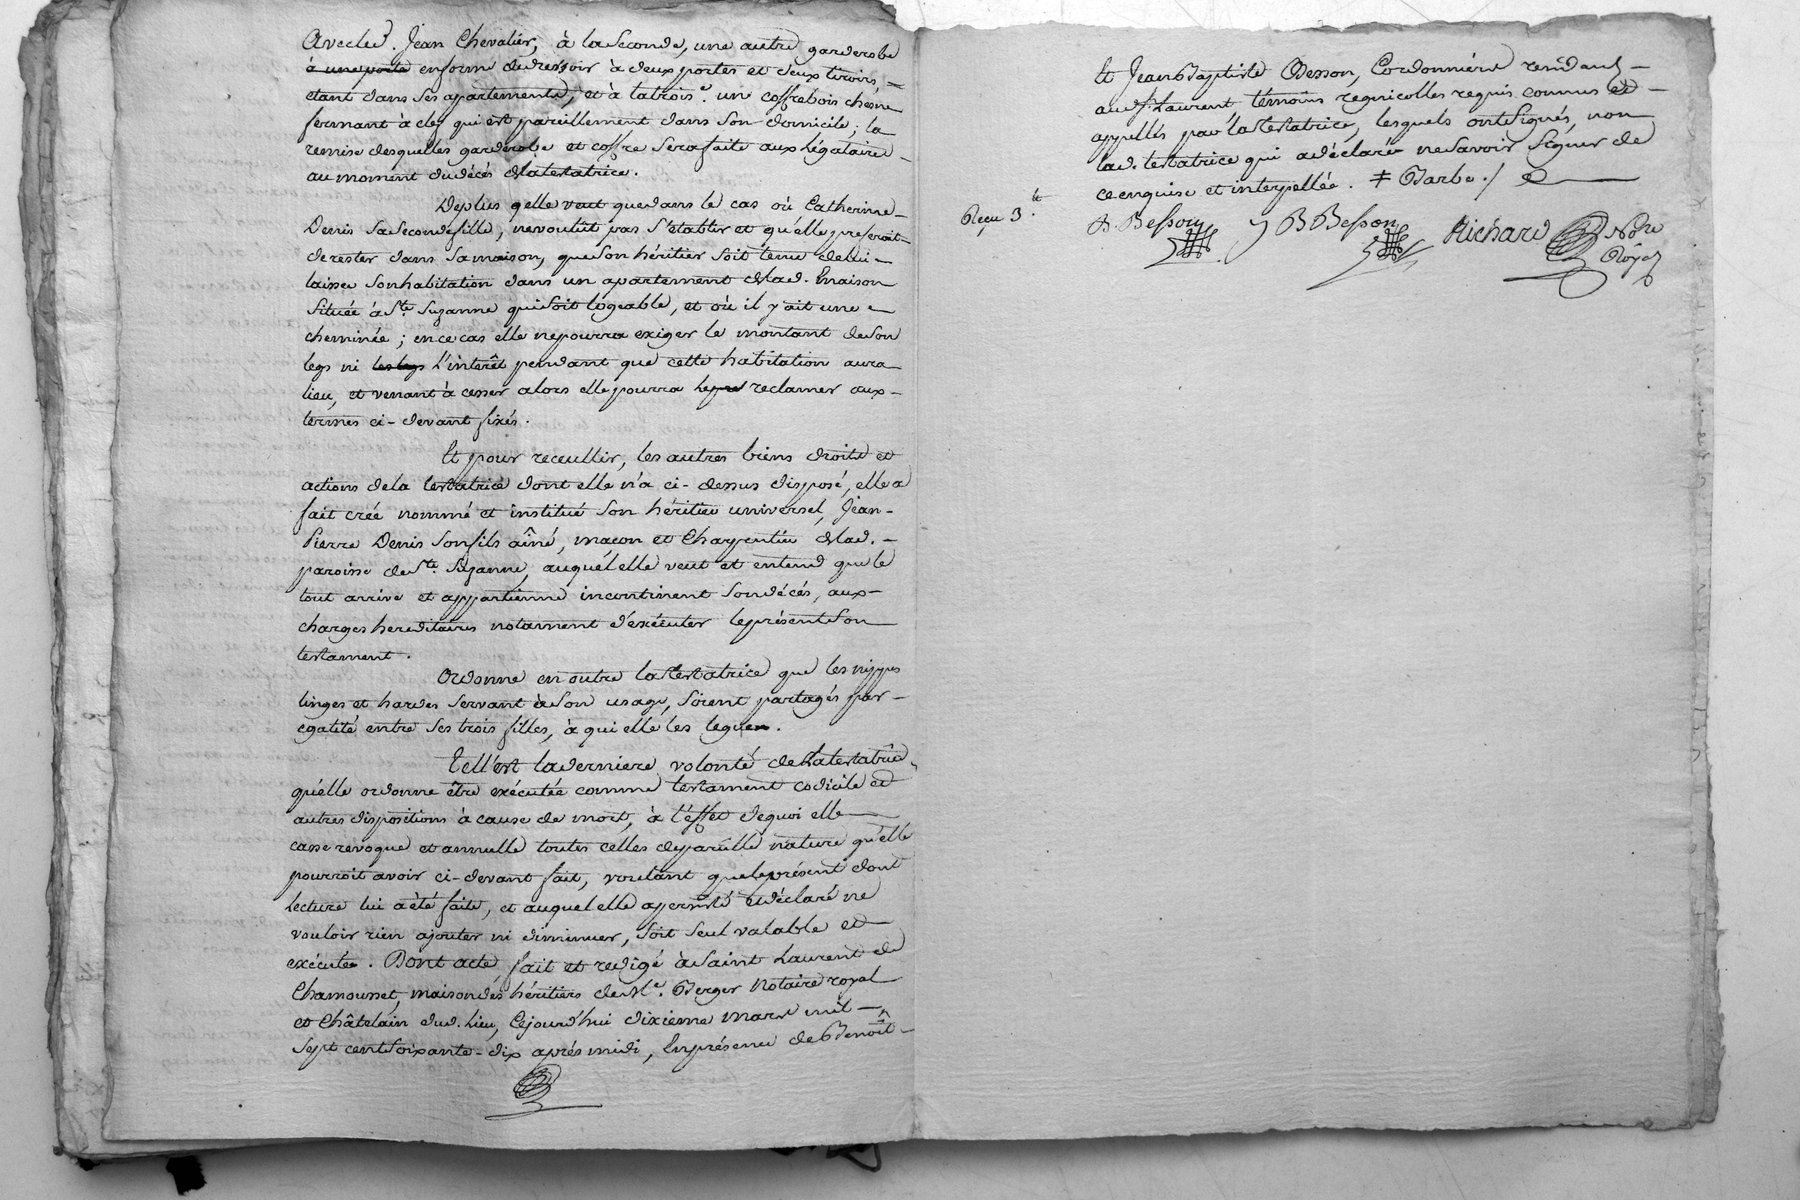 Avecled. Jean Chevalier, à la Seconde, une autre garderobe
à une porte en forme de dressoir à deux portes et deux tiroirs,
etant dans ses apartements, et à la trois.e un coffre bois chesne
fermant à clef qui est pareillement dans son domicile ; la
remise desquelles garderobe et coffre sera faite aux Légataires
au moment du décés de la testatrice.
De plus qelle veut que dans le cas où Catherine
Denis sa seconde fille, ne voulut pas S'etablir et qu'elle preferoit
de rester dans sa maison, que son héritier soit tenu de lui
laisser son habitation dans un apartement de lad. maison
Située à S.te Suzanne qui soit logeable, et où il y ait une
cheminée ; en ce cas elle ne pourra exiger le montant de son
legs ni les legs l'intérêt pendant que cette habitation aura
lieu, et venant à cesser alors elle pourra reclamer aux
termes ci-devant fixés.
Et pour receullir, les autres biens droits et
actions de la testatrice dont elle n'a ci-dessus disposé, elle a
fait créé nommé et institué son héritier universel, Jean-
Pierre Denis son fils aîné, macon et Charpentier de lad.
paroisse de S.te Suzanne, auquél elle veut et entend que le
tout arrive et appartienne incontinent son décés, aux
charges hereditaires notament d'exécuter le présent son
testament.
Ordonne en outre la testatrice que les nippes
linges et hardes servant à son usage, soient partagés par
egalité entre ses trois filles, à qui elle les legue.
Tell'est la derniere volonté de la testatrice
qu'elle ordonne être exécutée comme testament codicile et
autres dispositions à cause de mort, à l'éffet de quoi elle
casse revoque et annulle toutes celles de pareille nature qu'elle
pourroit avoir ci-devant fait, voulant que le présent dont
lecture lui a été faite, et auquel elle a persisté et déclaré ne
vouloir rien ajouter ni diminuer, soit seul valable et
exécutée. Dont acte, fait et redigé à Saint Laurent de
Chamousset, maison dés héritiers de M.e Berger Notaire royal
et Châtelain dud. Lieu, Cejourd'hui dixieme mars mil
Sept cent Soixante-dix aprés midi, En présence de Benoît
Et Jean Baptiste Besson, Cordonniers residant
aud. S.t Laurent témoins regnicolles requis connus et
appellés par la testatrice, lesquels ont signés, non
lad. testatrice qui a déclaré ne savoir Signer de
ce enquise et interpellée. ≠ Barbe ./
Reçu 3.lt
B. Besson J B Besson Richard No.re
Royal